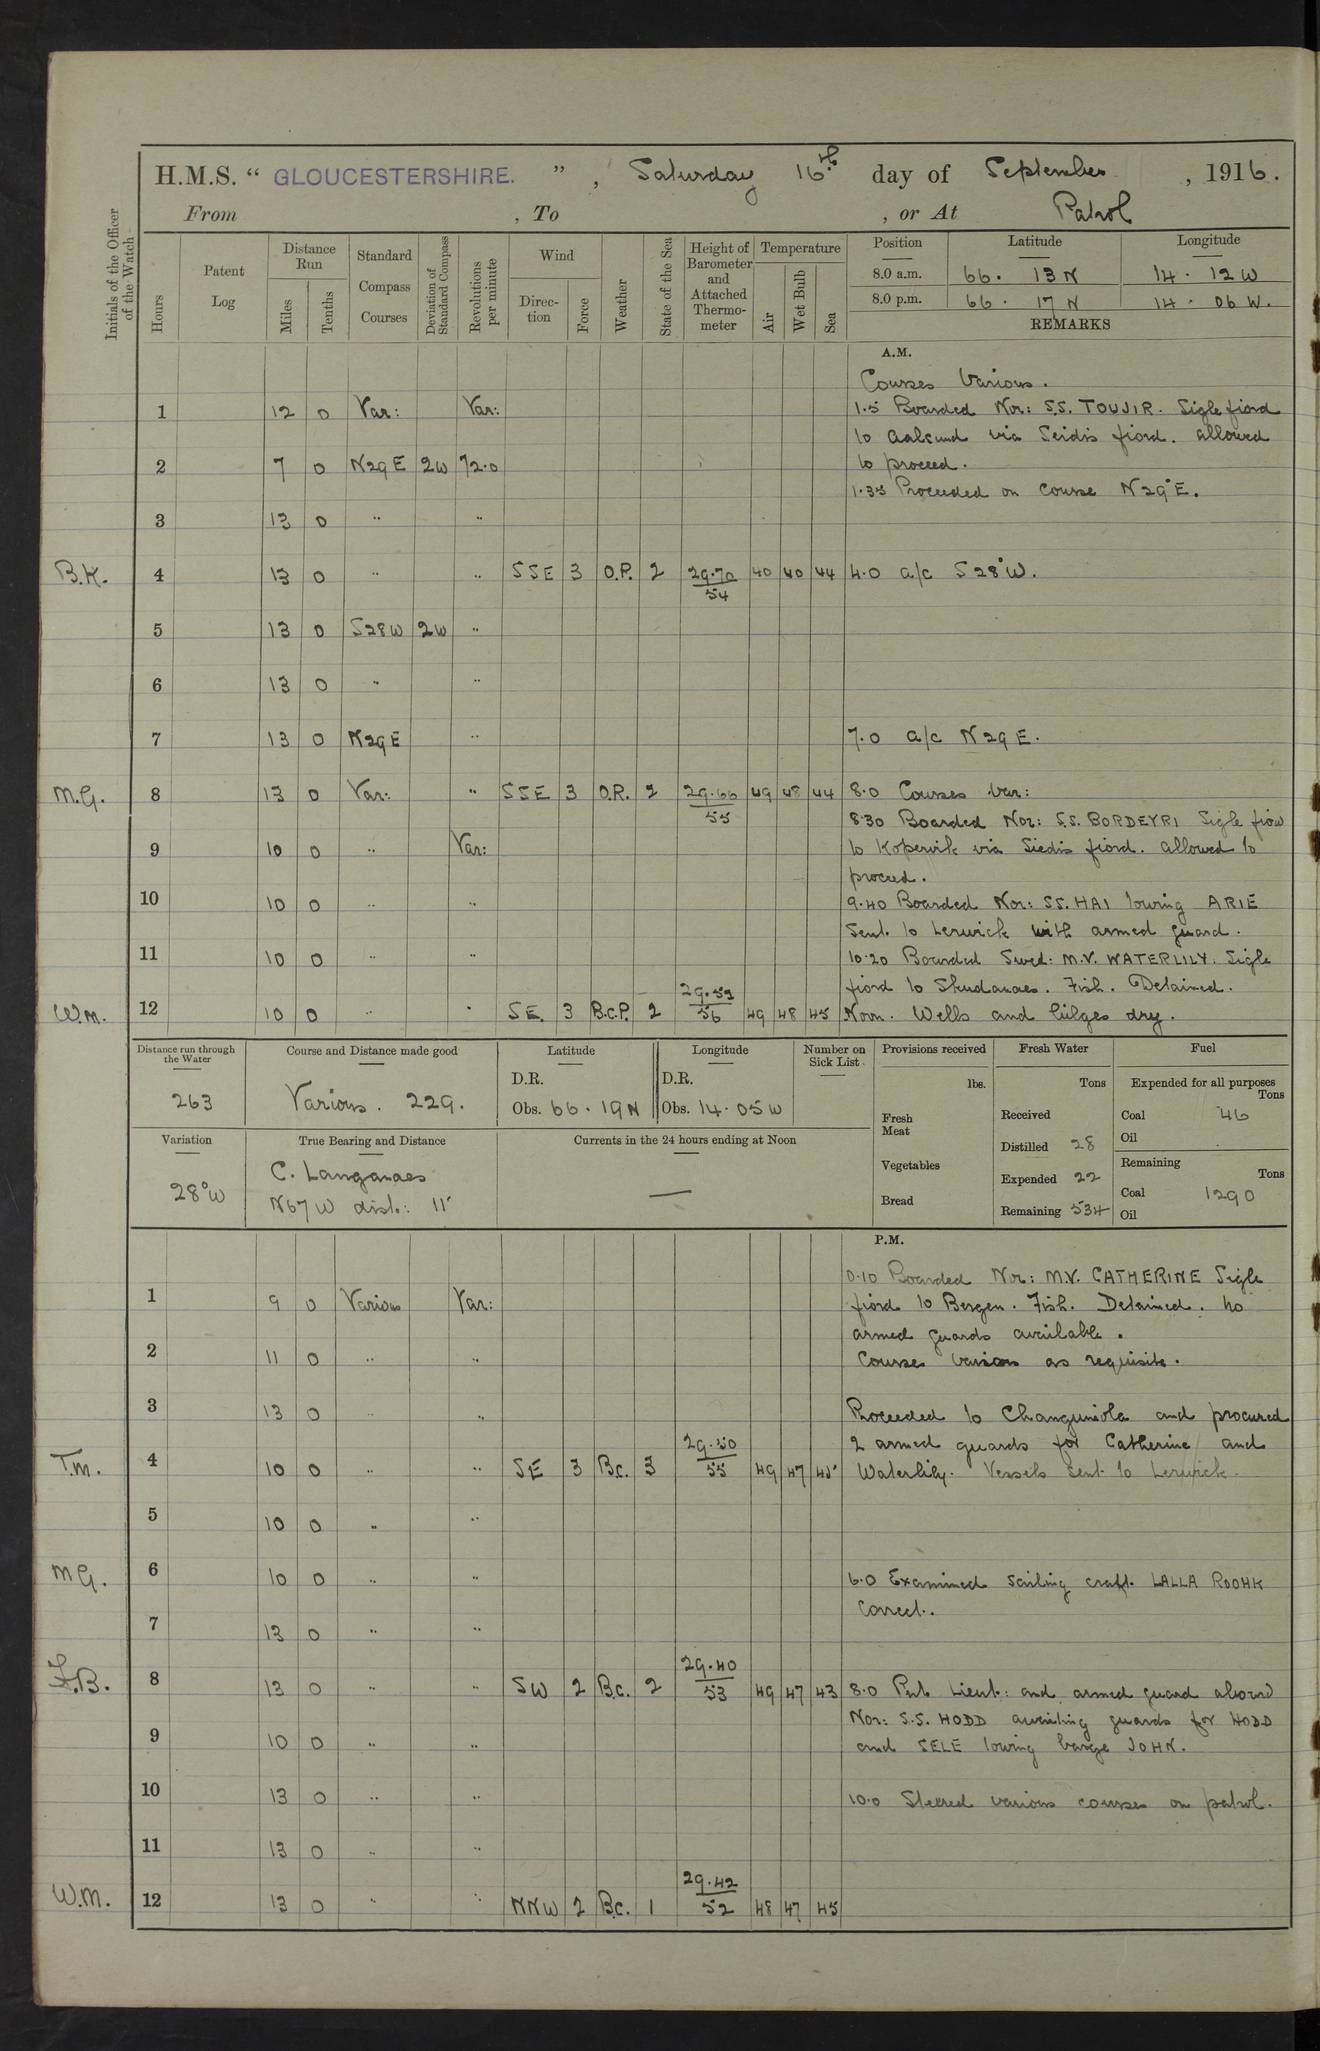 H.M.S. " GLOUCESTERSHIRE. " , Saturday 16th day of September , 1916.
From , To , or At Patrol
Initials of the Officer of the Watch
Hours
Patent Log
Distance Run
Miles
Tenths
Standard Compass Courses
Deviation of Standard Compass
Revolutions per minute
Wind
Direction
Force
Weather
State of the Sea
Height of Barometer and Attached Thermometer
Temperature
Air
Wet Bulb
Sea
Position Latitude Longitude
8.0 a.m. 66. 13 N 14. 12 W
8.0 p.m. 66. 17 N 14. 06 W.
REMARKS
A.M.
Courses Various.
1 12 0 Var: Var: 1.5 Boarded Nor: S.S. TOUJIR. Siglefiord
to Aalesund via Seidis fiord. allowed
2 7 0 N29E 2W 72.0 to proceed.
1.35 Proceeded on course N29°E.
3 13 0 " "
B.K. 4 13 0 " " SSE 3 O.P. 2 29.70 40 40 44 4.0 a/c S28°W.
54
5 13 0 S28W 2W "
6 13 0 " "
7 13 0 N29E " 7.0 a/c N29E.
M.G. 8 13 0 Var: " SSE 3 O.R. 2 29.66 49 48 44 8.0 Courses var:
55
8.30 Boarded Nor: S.S. BORDEYRI Sigle fiord
9 10 0 " Var: to Kopervik via Siedis fiord. allowed to
proceed.
10 10 0 " " 9.40 Boarded Nor: SS. HAI towing ARIE
Sent to Lerwick with armed guard.
11 10 0 " " 10.20 Boarded Swed: M.V. WATERLILY. Sigle
fiord to Skudanaes. Fish. Detained.
29.52
W.M. 12 10 0 " " SE. 3 B.C.P. 2 56 49 48 45 Noon. Wells and bilges dry.
Distance run through the Water
263
Course and Distance made good
Various. 229.
Latitude
D.R.
Obs. 66. 19 N
Longitude
D.R.
Obs. 14. 05 W
Number on Sick List
Variation
28°W
True Bearing and Distance
C. Langanaes
N67W dist: 11'
Currents in the 24 hours ending at Noon
—
Provisions received
lbs.
Fresh Meat
Vegetables
Bread
Fresh Water
Tons
Received
Distilled 28
Expended 22
Remaining 534
Fuel
Expended for all purposes
Tons
Coal 46
Oil
Remaining
Tons
Coal 1290
Oil
P.M.
0.10 Boarded Nor: M.V. CATHERINE Sigle
1 9 0 Various Var: fiord to Bergen. Fish. Detained. No
armed guards available.
2 11 0 " " Courses various as requisite.
3 13 0 " " Proceeded to Changuinola and procured
29.50 2 armed guards for Catherine and
T.M. 4 10 0 " " SE 3 B.C. 3 55 49 47 45 Waterlily. Vessels sent to Lerwick.
5 10 0 " "
MG. 6 10 0 " " 6.0 Examined sailing craft LALLA ROOHK
Correct.
7 13 0 " "
29.40
F.B. 8 13 0 " " SW 2 B.C. 2 53 49 47 43 8.0 Put Lieut: and armed guard aboard
Nor: S.S. HODD awaiting guards for HODD
9 10 0 " " and SELE towing barge JOHN.
10 13 0 " " 10.0 Steered various courses on patrol.
11 13 0 " "
29.42
W.M. 12 13 0 " " NNW 2 B.C. 1 52 48 47 45